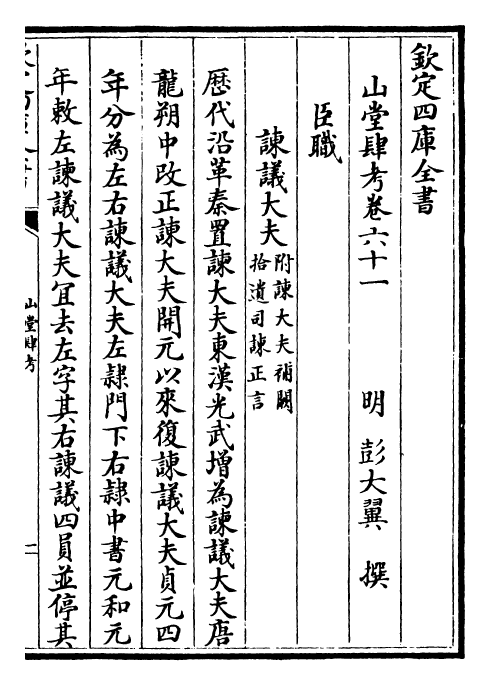 欽定四庫全書
山堂肆考卷六十一　明　彭大翼　撰
臣職
諫議大夫附諫大夫補闕
拾遺司諫正言
歴代沿革秦置諫大夫東漢光武增為諫議大夫唐
龍朔中改正諫大夫開元以來復諫議大夫貞元四
年分為左右諫議大夫左隷門下右隷中書元和元
年敕左諫議大夫冝去左字其右諫議四員並停其
山堂肆考